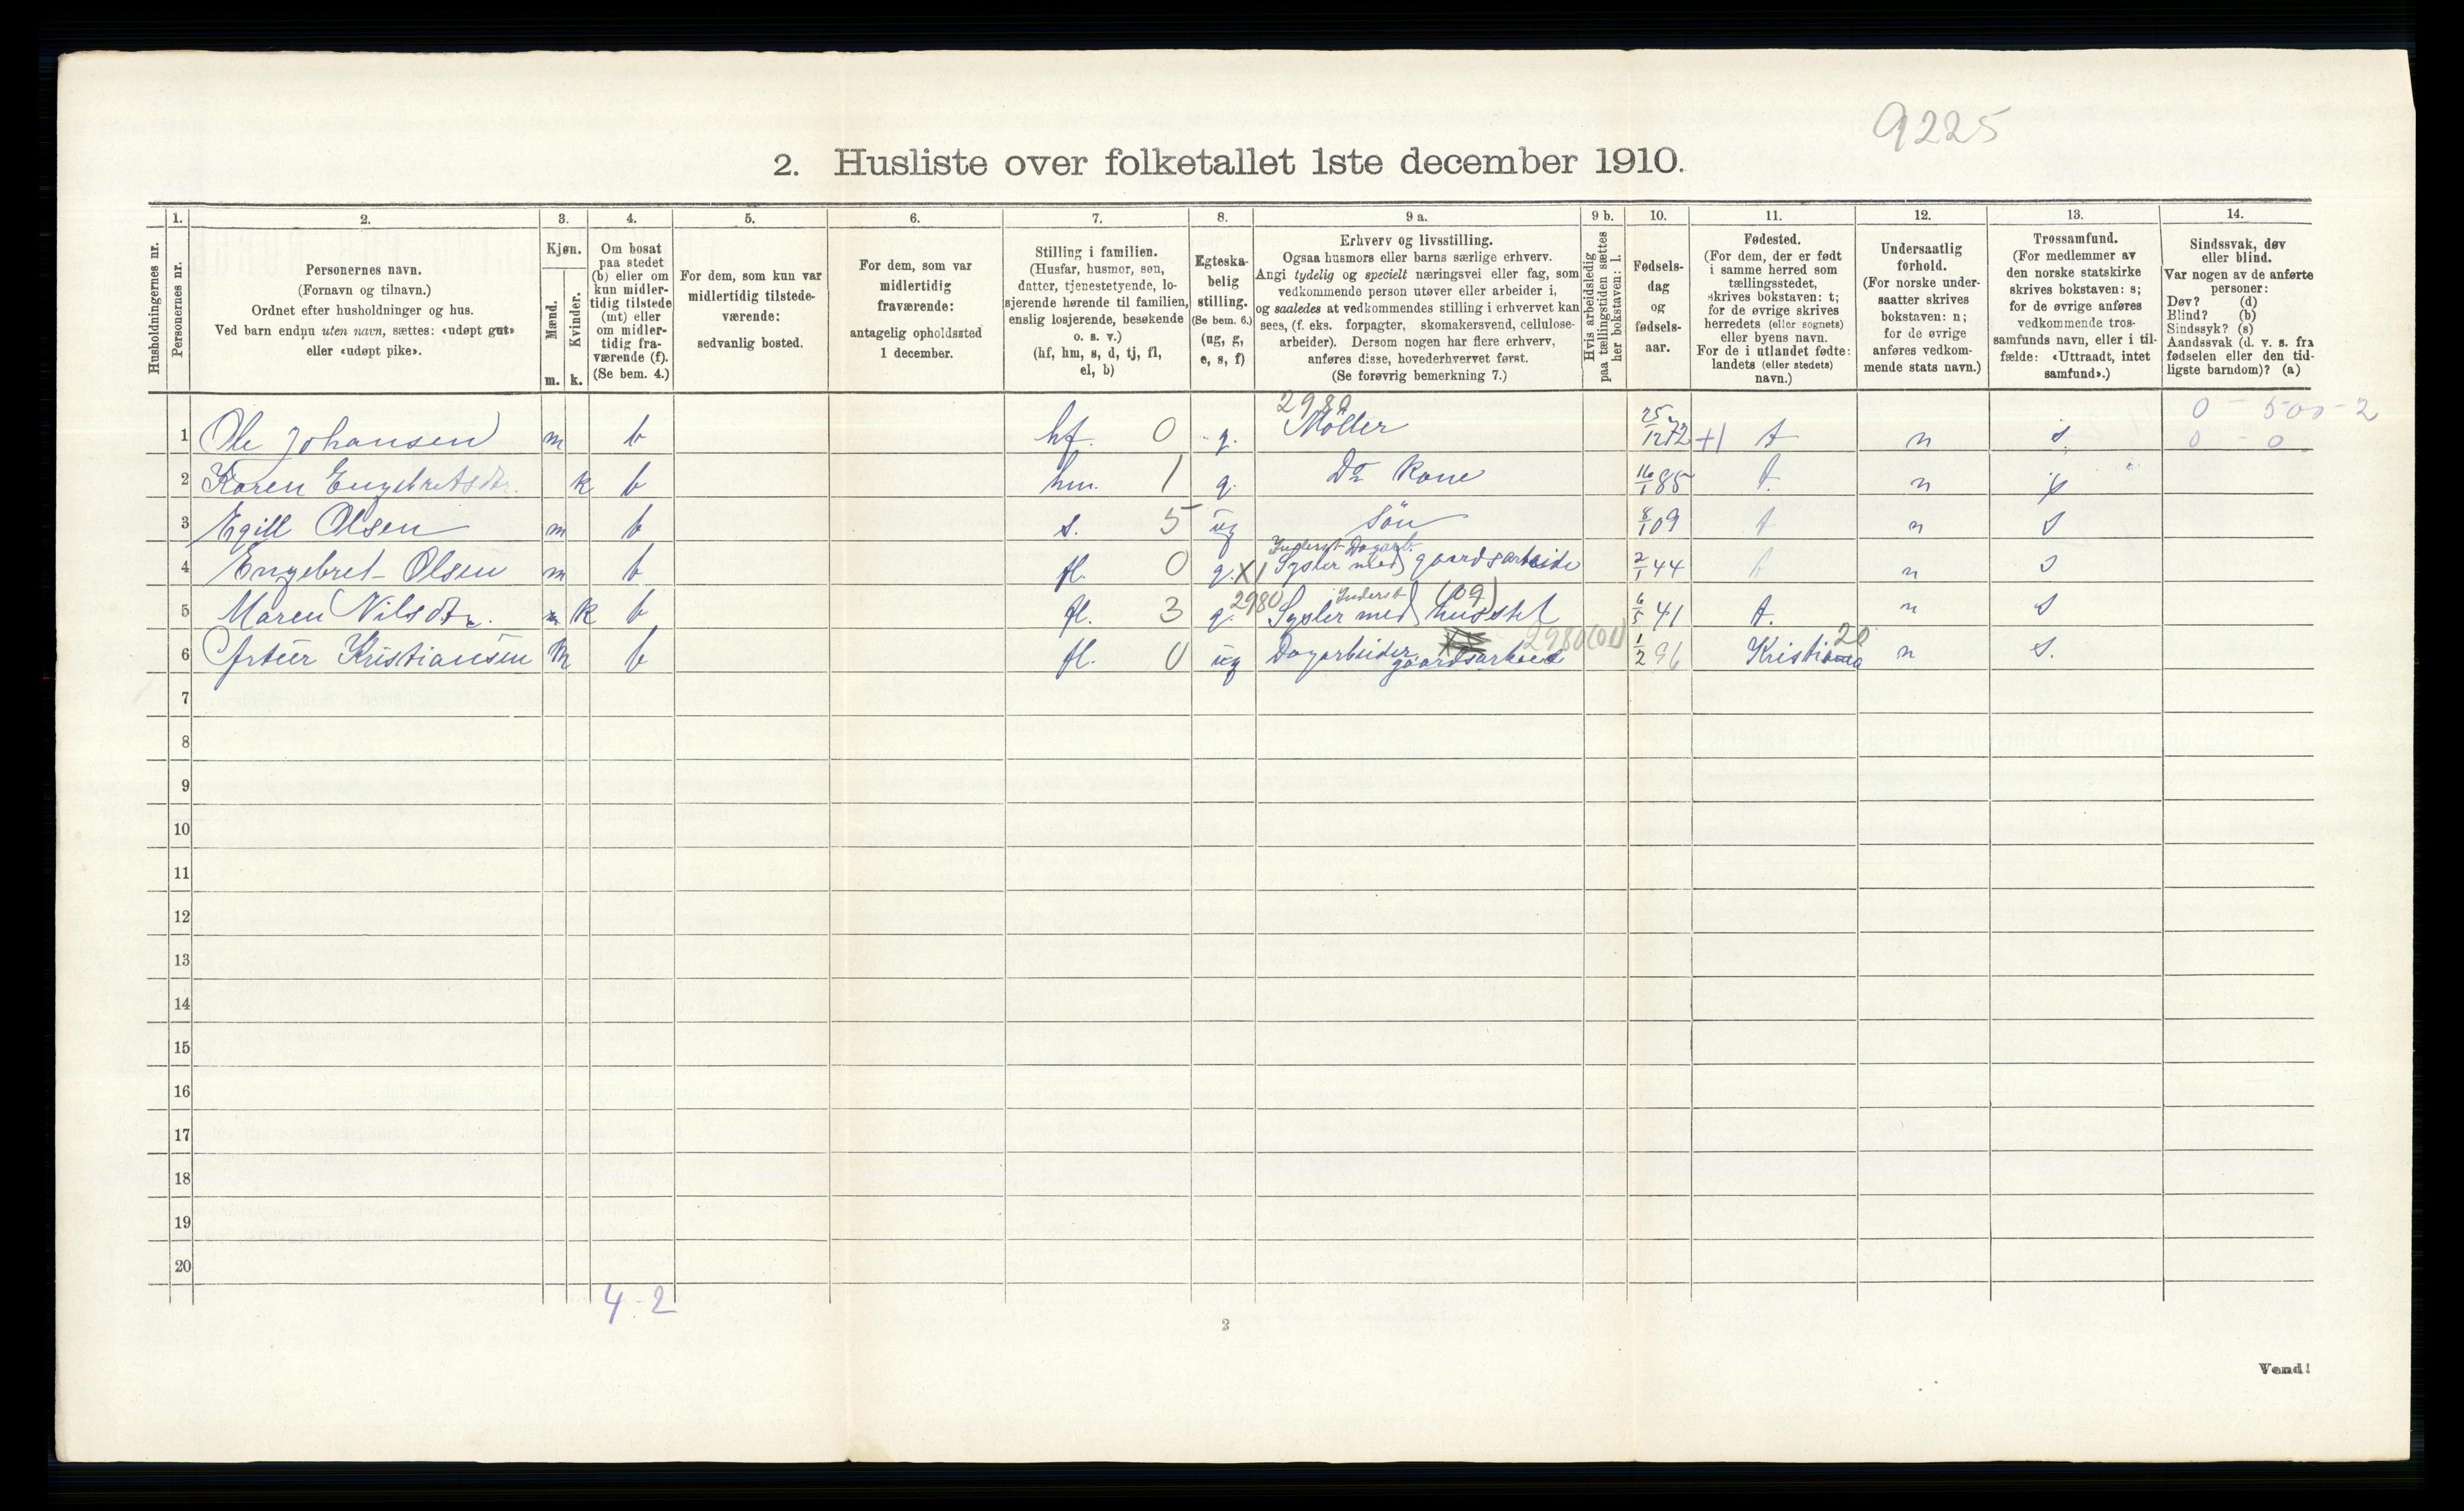 9225
2. Husliste over folketallet 1ste december 1910.
Husholdningernes nr.
1.
Personernes nr.
2.
Personernes navn.
(Fornavn og tilnavn.)
Ordnet efter husholdninger og hus.
Ved barn endnu uten navn, sættes: «udøpt gut»
eller «udøpt pike».
3.
Kjøn.
Mænd.
Kvinder.
m. k.
4.
Om bosat
paa stedet
(b) eller om
kun midler-
tidig tilstede
(mt) eller
om midler-
tidig fra-
værende (f).
(Se bem. 4.)
5.
For dem, som kun var
midlertidig tilstede-
værende:
sedvanlig bosted.
6.
For dem, som var
midlertidig
fraværende:
antagelig opholdssted
1 december.
7.
Stilling i familien.
(Husfar, husmor, søn,
datter, tjenestetyende, lo-
sjerende hørende til familien,
enslig losjerende, besøkende
o. s. v.)
(hf, hm, s, d, tj, fl,
el, b)
8.
Egteska-
belig
stilling.
(Se bem. 6.)
(ug, g,
e, s, f)
9 a.
Erhverv og livsstilling.
Ogsaa husmors eller barns særlige erhverv.
Angi tydelig og specielt næringsvei eller fag, som
vedkommende person utøver eller arbeider i,
og saaledes at vedkommendes stilling i erhvervet kan
sees, (f. eks. forpagter, skomakersvend, cellulose-
arbeider). Dersom nogen har flere erhverv,
anføres disse, hovederhvervet først.
(Se forøvrig bemerkning 7.)
9 b.
Hvis arbeidsledig
paa tællingstiden sættes
her bokstaven: l.
10.
Fødsels-
dag
og
fødsels-
aar.
11.
Fødested.
(For dem, der er født
i samme herred som
tællingsstedet,
skrives bokstaven: t;
for de øvrige skrives
herredets (eller sognets)
eller byens navn.
For de i utlandet fødte:
landets (eller stedets)
navn.)
12.
Undersaatlig
forhold.
(For norske under-
saatter skrives
bokstaven: n;
for de øvrige
anføres vedkom-
mende stats navn.)
13.
Trossamfund.
(For medlemmer av
den norske statskirke
skrives bokstaven: s;
for de øvrige anføres
vedkommende tros-
samfunds navn, eller i til-
fælde: «Uttraadt, intet
samfund».)
14.
Sindssvak, døv
eller blind.
Var nogen av de anførte
personer:
Døv? (d)
Blind? (b)
Sindssyk? (s)
Aandssvak (d. v. s. fra
fødselen eller den tid-
ligste barndom)? (a)
2980 0 - 500 - 2
1 Ole Johansen m b hf. 0 g. Möller 25/12 72 +1 t n s. 0 - 0
2 Karen Engebretsdtr. k b hm. 1 g. Do Kone 16/1 85 t. n s
3 Egill Olsen m b s. 5 ug Sön 8/1 09 t n s
Inderst Dagarb.
4 Engebret Olsen m b fl. 0 g. X1 Sysler med gaardsarbeide 2/1 44 t n s
2980 Inderst (09)
5 Maren Nilsdtr. k b fl. 3 g. Sysler med husstel 6/5 41 t. n s
2980(01) 20
6 Artur Kristiansen m b fl. 0 ug Dagarbeider gaardsarbeid 1/2 96 Kristiania n s.
7
8
9
10
11
12
13
14
15
16
17
18
19
20
4 - 2
2
Vend!